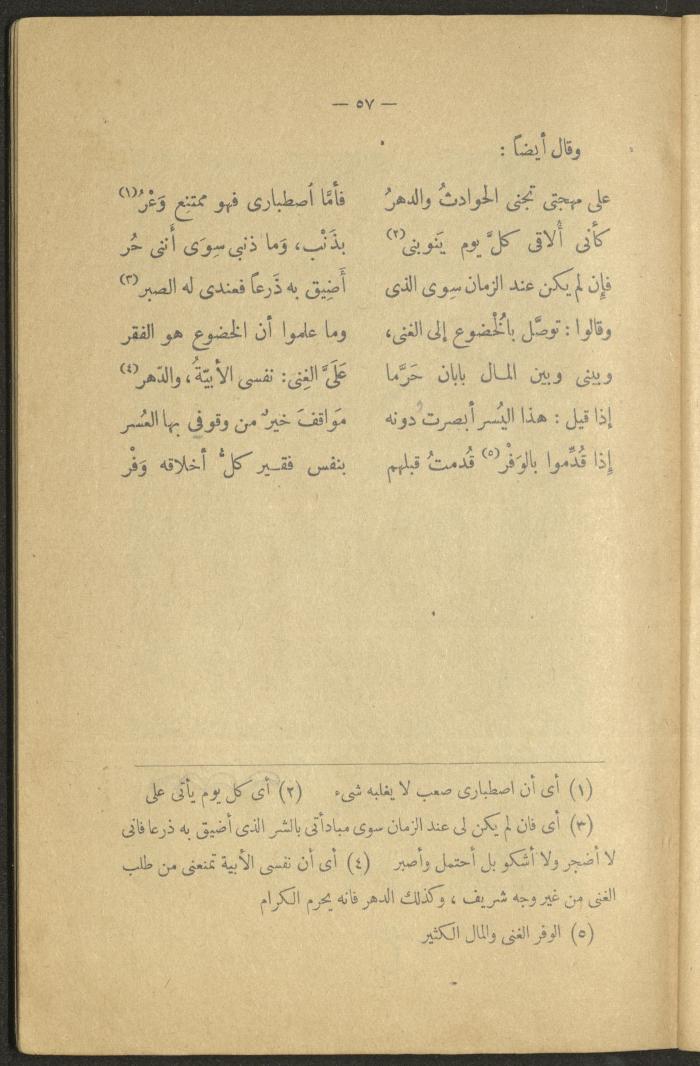 — ٥٧ —
وقال أيضاً :
على مهجتى تجنى الحوادثُ والدهرُ فأمَّا اُصطبارى فهو ممتنِع وَعْرُ(١)
كأنى أُلاقى كلَّ يوم يَنوبنى(٢) بذَنْب، وَما ذنبى سِوَى أَننى حُر
فإن لم يكن عند الزمان سِوى الذى أَضيق به ذَرعاً فعندى له الصبر(٣)
وقالوا : توصَّل بالُخضوع إلى الغنى، وما علموا أن الخضوع هو الفقر
وبينى وبين المال بابان حَرَّما عَلَىَّ الغِنى: نفسى الأبيّةُ، والدّهر(٤)
إذا قيل : هذا اليُسر أبصرت دونه مَواقفَ خيرٌ من وقوفى بها العُسر
إِذا قُدِّموا بالوَفْر(٥) قُدمتُ قبلهم بنفس فقـير كلُّ أخلاقه وَفْر
(١) أى أن اصطبارى صعب لا يغلبه شىء (٢) أى كل يوم يأتى على
(٣) أى فان لم يكن لى عند الزمان سوى مبادأتى بالشر الذى أضيق به ذرعا فانى
لا أضجر ولا أشكو بل أحتمل وأصبر (٤) أى أن نفسى الأبية تمنعنى من طلب
الغنى من غير وجه شريف ، وكذلك الدهر فانه يحرم الكرام
(٥) الوفر الغنى والمال الكثير